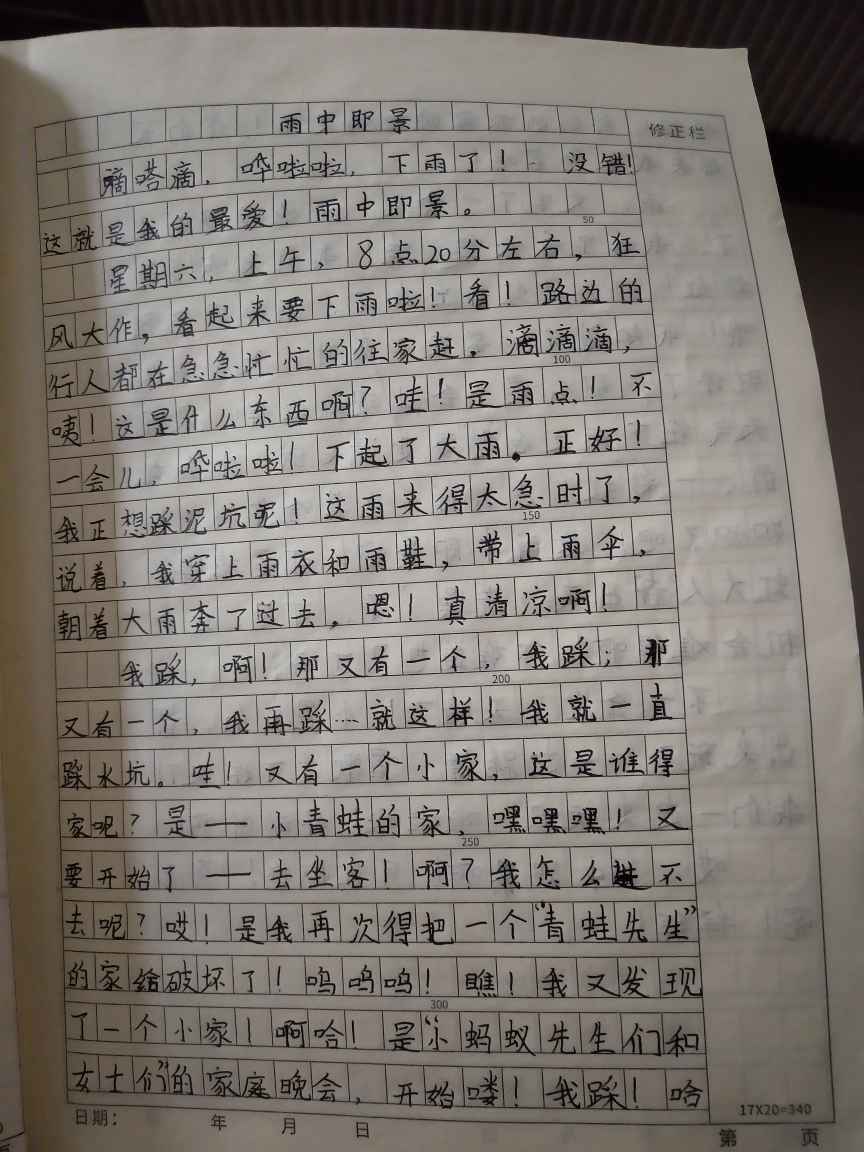 雨中即景
修正栏
滴嗒滴，哗啦啦，下雨了！没错！
这就是我的最爱！雨中即景。
50
星期六，上午，8点20分左右，狂
风大作，看起来要下雨啦！看！路边的
行人都在急急忙忙的往家赶。滴滴滴，
100
咦！这是什么东西啊？哇！是雨点！不
一会儿，哗啦啦！下起了大雨。正好！
我正想踩泥坑呢！这雨来得太急时了，
150
说着，我穿上雨衣和雨鞋，带上雨伞，
朝着大雨奔了过去。嗯！真清凉啊！
我踩，啊！那又有一个，我踩；那
200
又有一个，我再踩……就这样！我就一直
踩水坑。哇！又有一个小家，这是谁得
家呢？是——小青蛙的家，嘿嘿嘿！又
250
要开始了——去坐客！啊？我怎么进不
去呢？哎！是我再次得把一个“青蛙先生”
的家给破坏了！呜呜呜！瞧！我又发现
300
了一个小家！啊哈！是“小蚂蚁先生们和
女士们”的家庭晚会，开始喽！我踩！哈
17X20=340
日期： 年 月 日
第 页